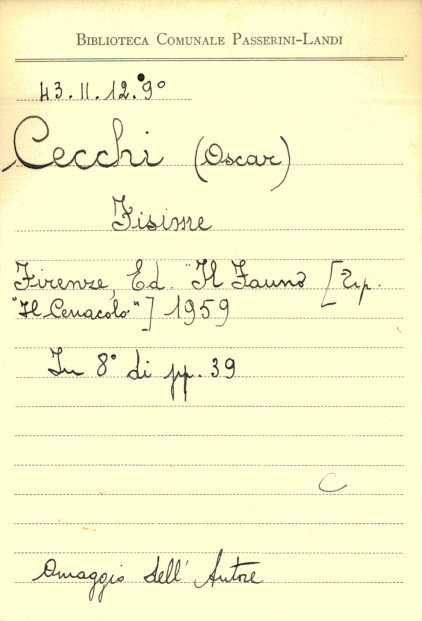 BIBLIOTECA COMUNALE PASSERINI-LANDI
43.II.12.9°
Cecchi (Oscar)
Fisime
Firenze, Ed. "Il Fauno [Tip.
"Il Cenacolo"] 1959
In 8° di pp. 39
C
Omaggio dell' Autore